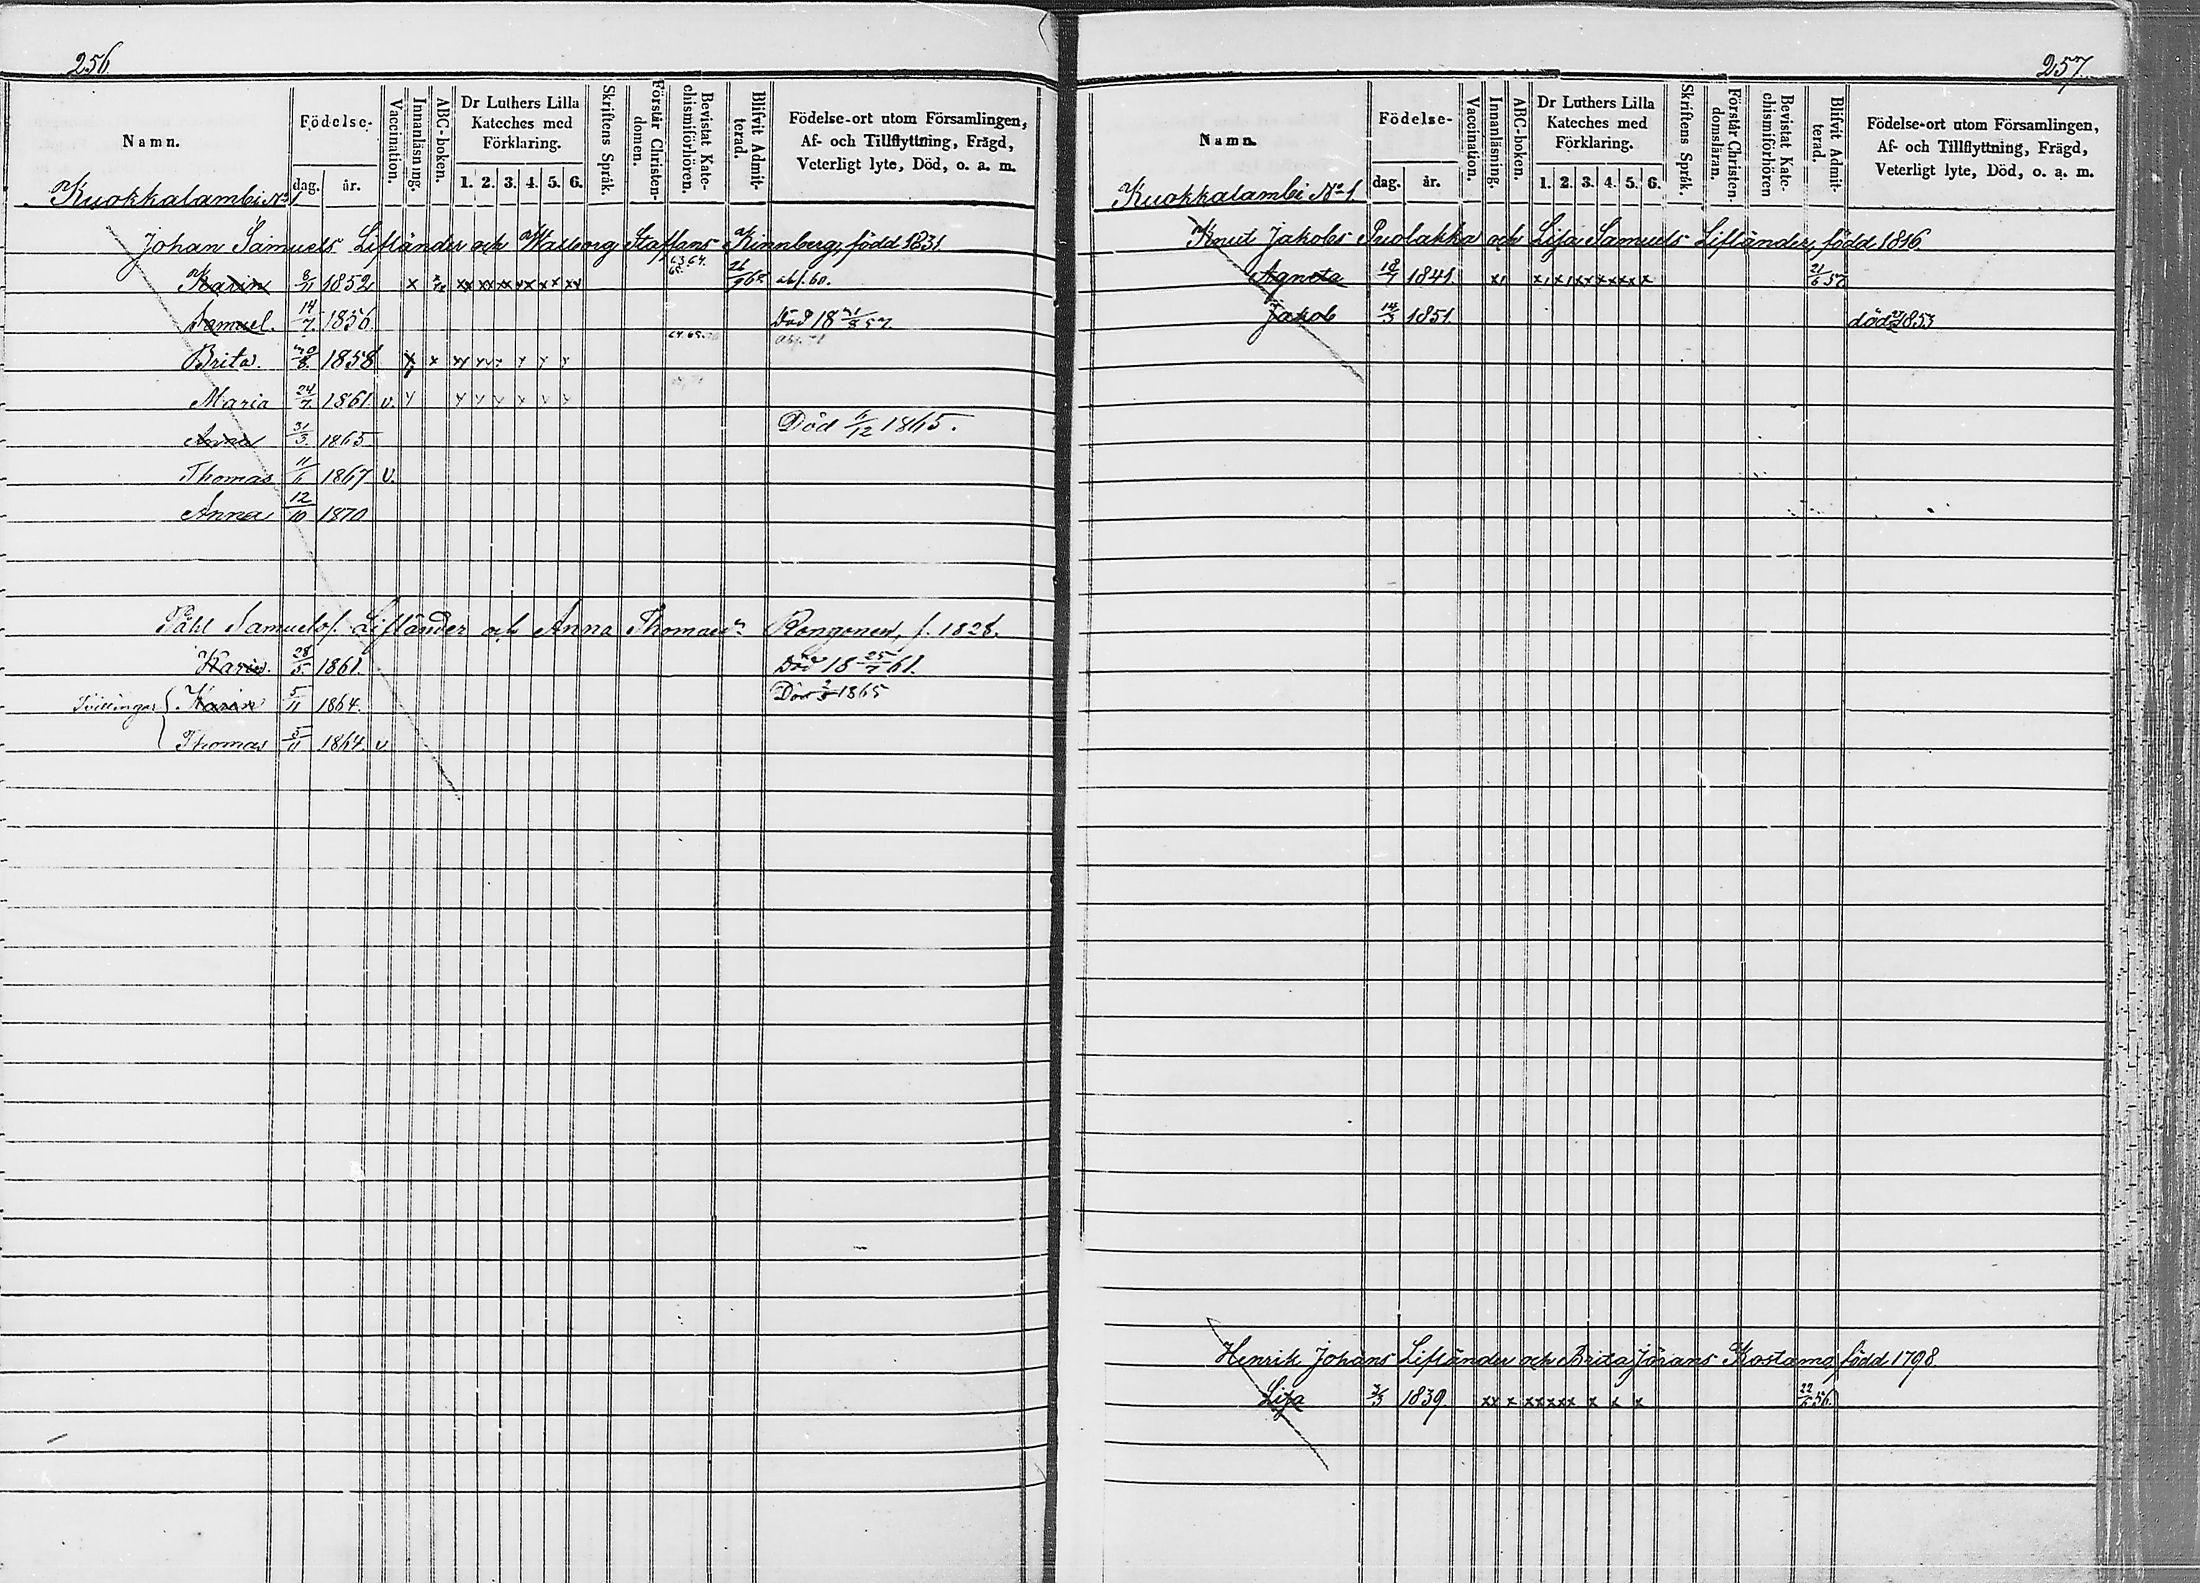 256
Namn.
Födelse-
dag.
år.
Vaccination.
Innanläsning.
ABC-boken.
Dr Luthers Lilla
Kateches med
Förklaring.
1. 2. 3. 4. 5. 6.
Skriftens Språk.
Förstår Christen-
domen.
Bevistat Kate-
chismiförhören.
Blifvit Admit-
terad.
Födelse-ort utom Församlingen,
Af- och Tillflyttning, Frägd,
Veterligt lyte, Död, o. a. m.
Kuokkalambi No 1
Johan Samuels Lifländer och Walborg Staffans Kinnberg, född 1831.
Karin 1852 x xx xx xx xx x x xx 63 64. 65. abs. 60.
Samuel. 14/7. 1856 Död 18 57.
Brita. 1858 x
Maria 24/7. 1861 v.
Anna 31/3. 1865 Död 11/12 1865.
Thomas 1867 v.
Anna 12/10 1870
Påhl Samuelss. Lifländer och Anna Thomaed:r Rongonen, f. 1828.
Karin. 28/5. 1861. Död 18 25/7 61.
Tvillingar Karin 5/11 1864. Död 1865
Thomas 5/11 1864. v
257
Namn.
Födelse-
dag.
år.
Vaccination.
Innanläsning.
ABC-boken.
Dr Luthers Lilla
Kateches med
Förklaring.
1. 2. 3. 4. 5. 6.
Skriftens Språk.
Förstår Christen-
domsläran.
Bevistat Kate-
chismiförhören
Blifvit Admit-
terad.
Födelse-ort utom Församlingen,
Af- och Tillflyttning, Frägd,
Veterligt lyte, Död, o. a. m.
Kuokkalambi No 1.
Knut Jakobs Puolakka och Lisa Samuels Lifländer, född 1816.
Agneta 18/7 1841.
Jakob 14/3 1851. död 1853
Henrik Johans Lifländer och Brita Jörans Kostamo, född 1798.
Lisa 3/3 1839. xx x xx xxx x x x 22/6 56.